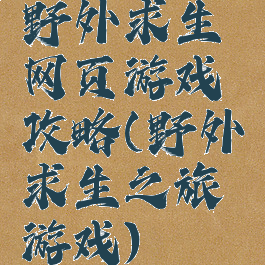 野外求生
网页游戏
攻略(野外
求生之旅
游戏)